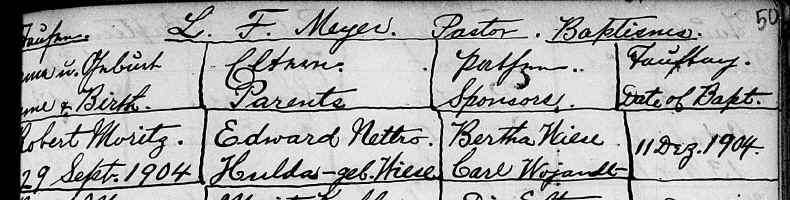 Taufen. L. F. Meyer. Pastor. Baptisms. 50
u. Geburt Eltern. Pathen. Tauftag.
& Birth. Parents Sponsors. Date of Bapt.
Robert Moritz. Edward Nettro. Bertha Wiese 11 Dez. 1904.
29 Sept. 1904 Hulda - geb. Wiese Carl Wojandt